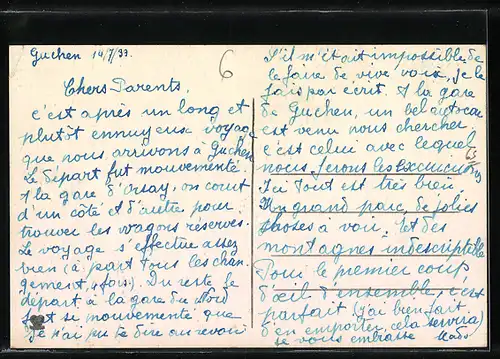 Guchen 14/7/39.
6
Chers Parents,
C'est après un long et
plutôt ennuyeux voyage
que nous arrivons à Guchen
Le départ fut mouvementé.
A la gare d'orsay, on court
d'un côté et d'autre pour
trouver les wagons réservés.
Le voyage s'effectue assez
bien (à part tous les chan-
gement, 4 fois). Du reste le
départ à la gare du Nord
fut si mouvementé que
je n'ai pu te dire au revoir
S'il m'était impossible de
le faire de vive voix, je le
fais par écrit. A la gare
de Guchen, un bel autocar
est venu nous chercher
c'est celui avec lequel
nous ferons les excursions
63
Ici tout est très bien.
Un grand parc, de jolies
choses à voir. Et des
montagnes indescriptible
Pour le premier coup
d'œil d'ensemble, c'est
parfait (j'ai bien fait
d'en emporter, cela servira)
je vous embrasse